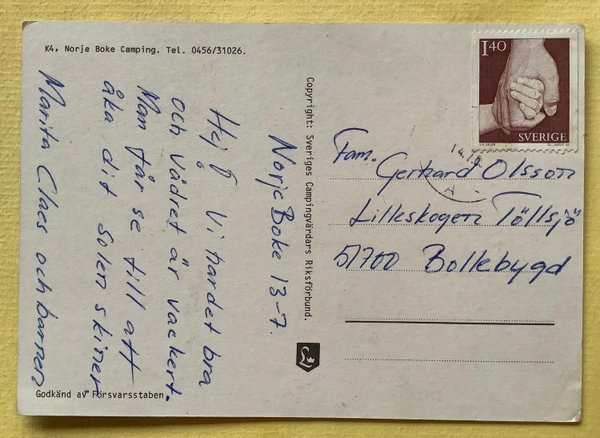 K4, Norje Boke Camping. Tel. 0456/31026.
Norje Boke 13-7.
Hej! Vi har det bra
och vädret är vackert.
Man får se till att
åka dit solen skiner
Marita Claes och barnen
Godkänd av Försvarsstaben.
Copyright: Sveriges Campingvärdars Riksförbund.
140
SVERIGE
14.7
A
Fam. Gerhard Olsson
Lilleskogen Töllsjö
51700 Bollebygd